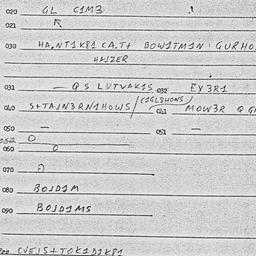 020 GL C1M3
021 R
030 HA,NT1K81 CA,T+ BOW1TM1N : GURHO
HAJZER
031 — Q S LUTVAK1S 032 EX3R1
040 S+TAJN3RN1HOWS / (1GL3HONS) 041 MOW3R Q G
050 — 051 —
052 O
060 O
070 A
080 BOJD1M
090 BOJD1MS
CVEJS+TOK1D1K81